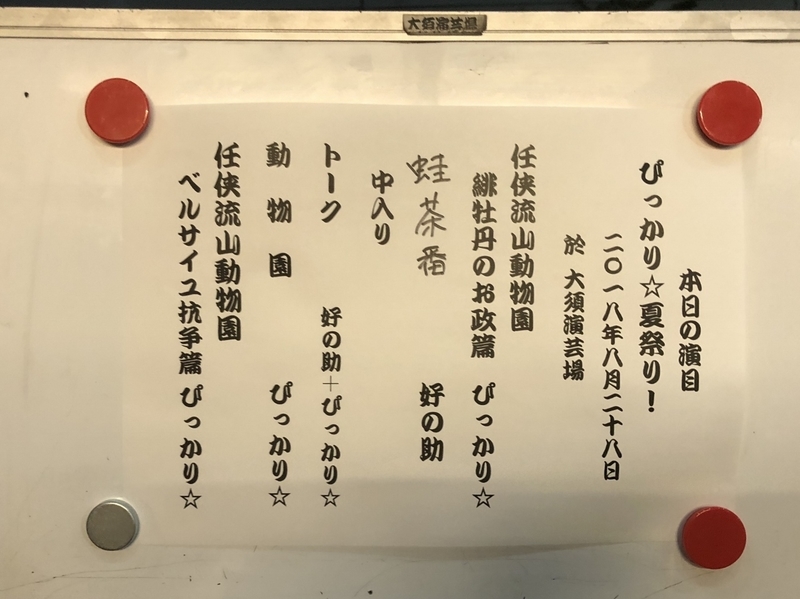 大須演芸場
本日の演目
ぴっかり☆夏祭り！
二〇一八年八月二十八日
於 大須演芸場
任侠流山動物園
緋牡丹のお政篇 ぴっかり☆
蛙茶番 好の助
中入り
トーク 好の助＋ぴっかり☆
動物園 ぴっかり☆
任侠流山動物園
ベルサイユ抗争篇 ぴっかり☆